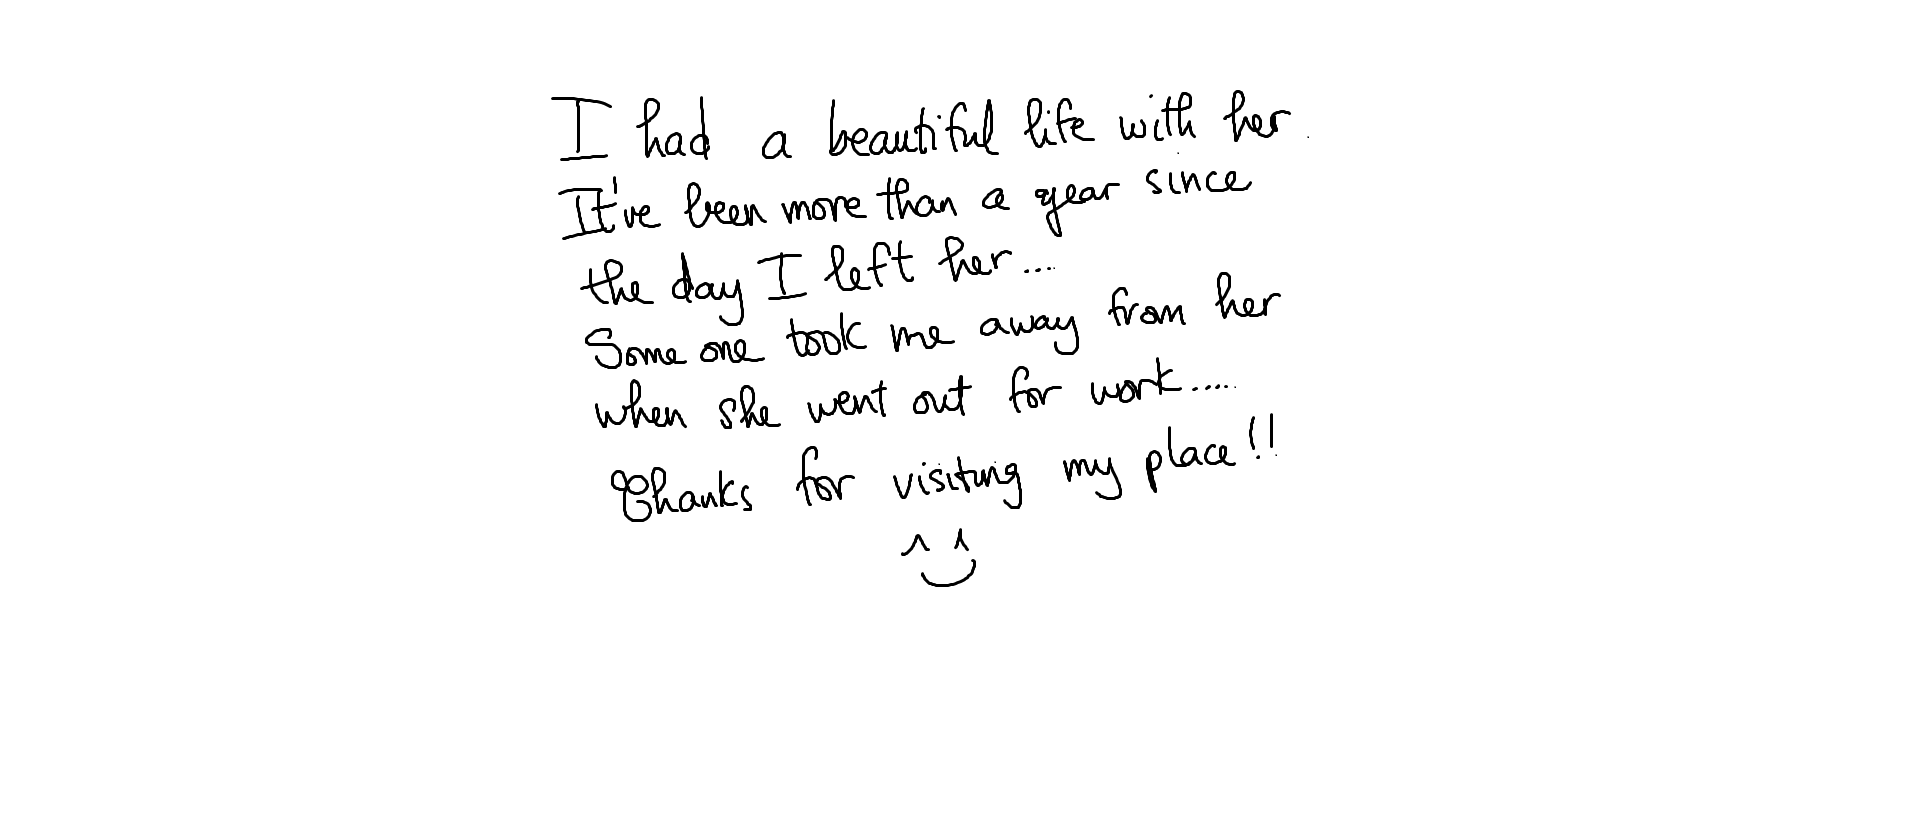 I had a beautiful life with her.
It've been more than a year since
the day I left her....
Some one took me away from her
when she went out for work.....
Thanks for visiting my place!!